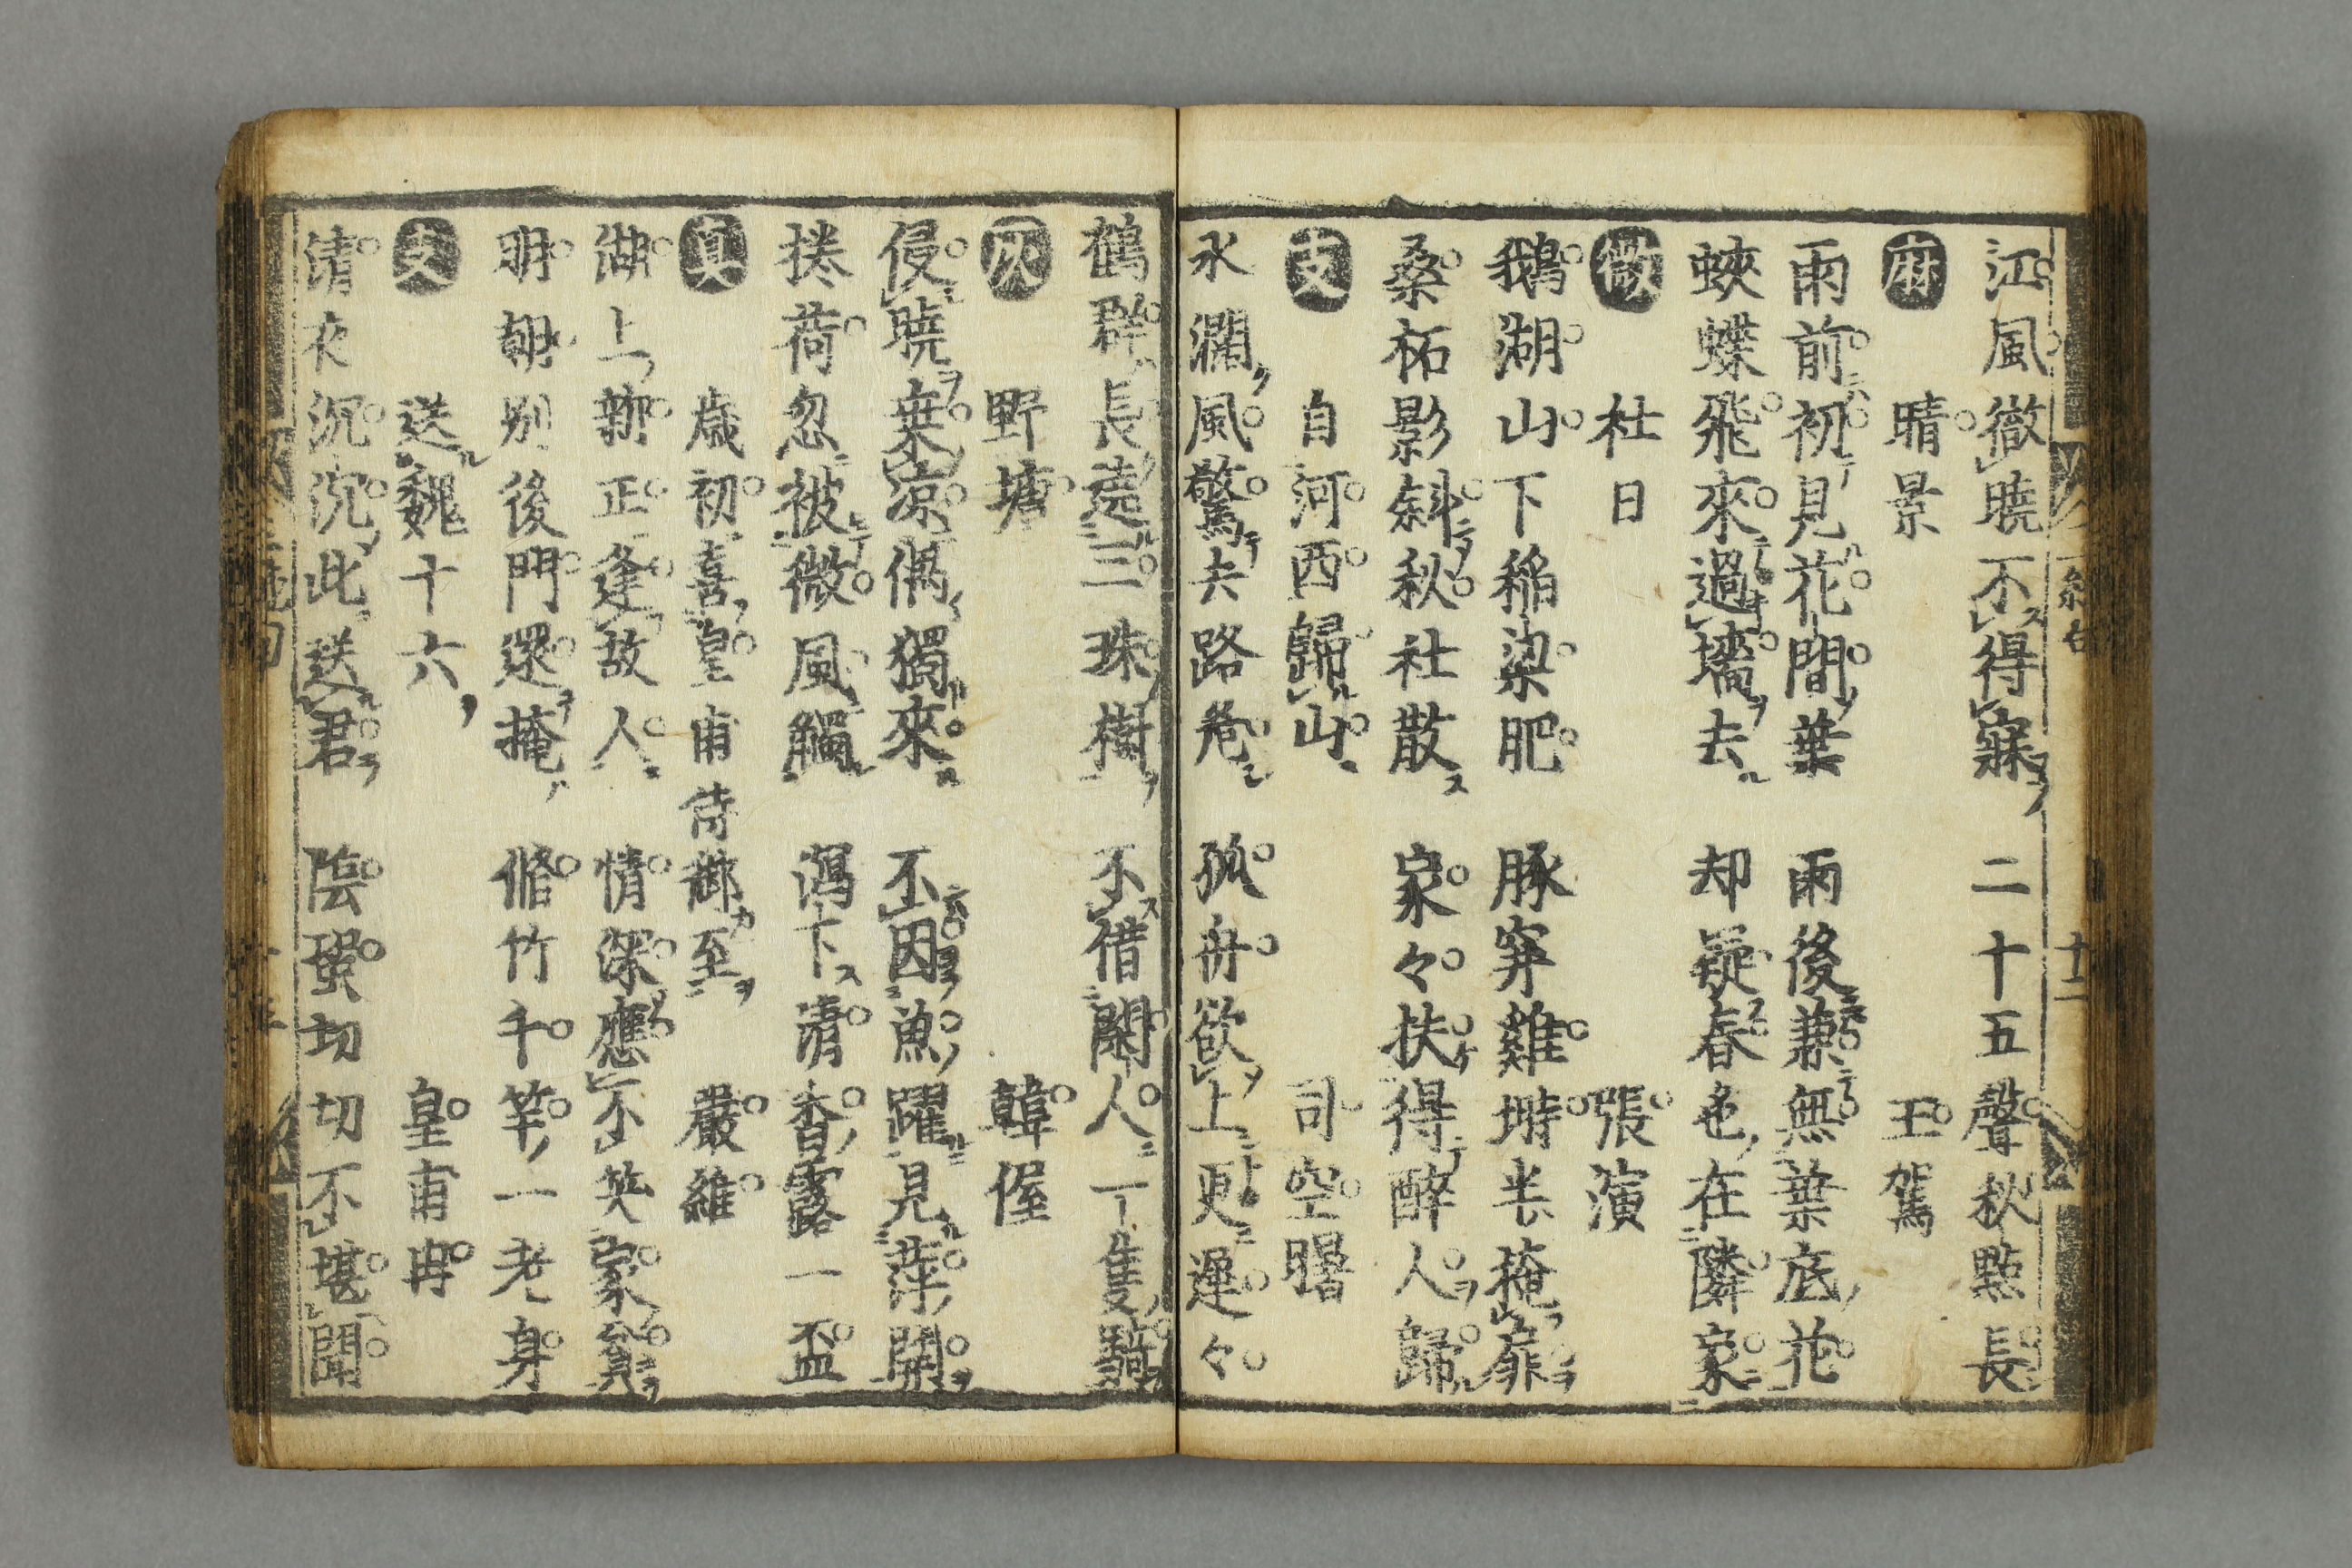 江風徹曉不得寐 二十五聲秋點長
麻 晴景 王駕
雨前初見花間葉 雨後兼無葉底花
蛺蝶飛來過墻去 却疑春色在隣家
微 社日 張演
鵝湖山下稲粱肥 豚穽雞塒半掩扉
桑柘影斜秋社散 家々扶得醉人歸
支 自河西歸山 司空曙
水濶風驚去路危 孤舟欲上更遲々
鶴群長遶三珠樹 不借閑人一隻騎
灰 野塘 韓偓
侵曉乗凉偶獨來 不因魚躍見萍開
捲荷忽被微風觸 瀉下清香露一盃
真 歳初喜皇甫侍郷至 嚴維
湖上新正逢故人 情深應不笑家貧
明朝別後門還掩 脩竹千竿一老身
文 送魏十六 皇甫冉
清夜沉沉此送君 陰蛩切切不堪聞